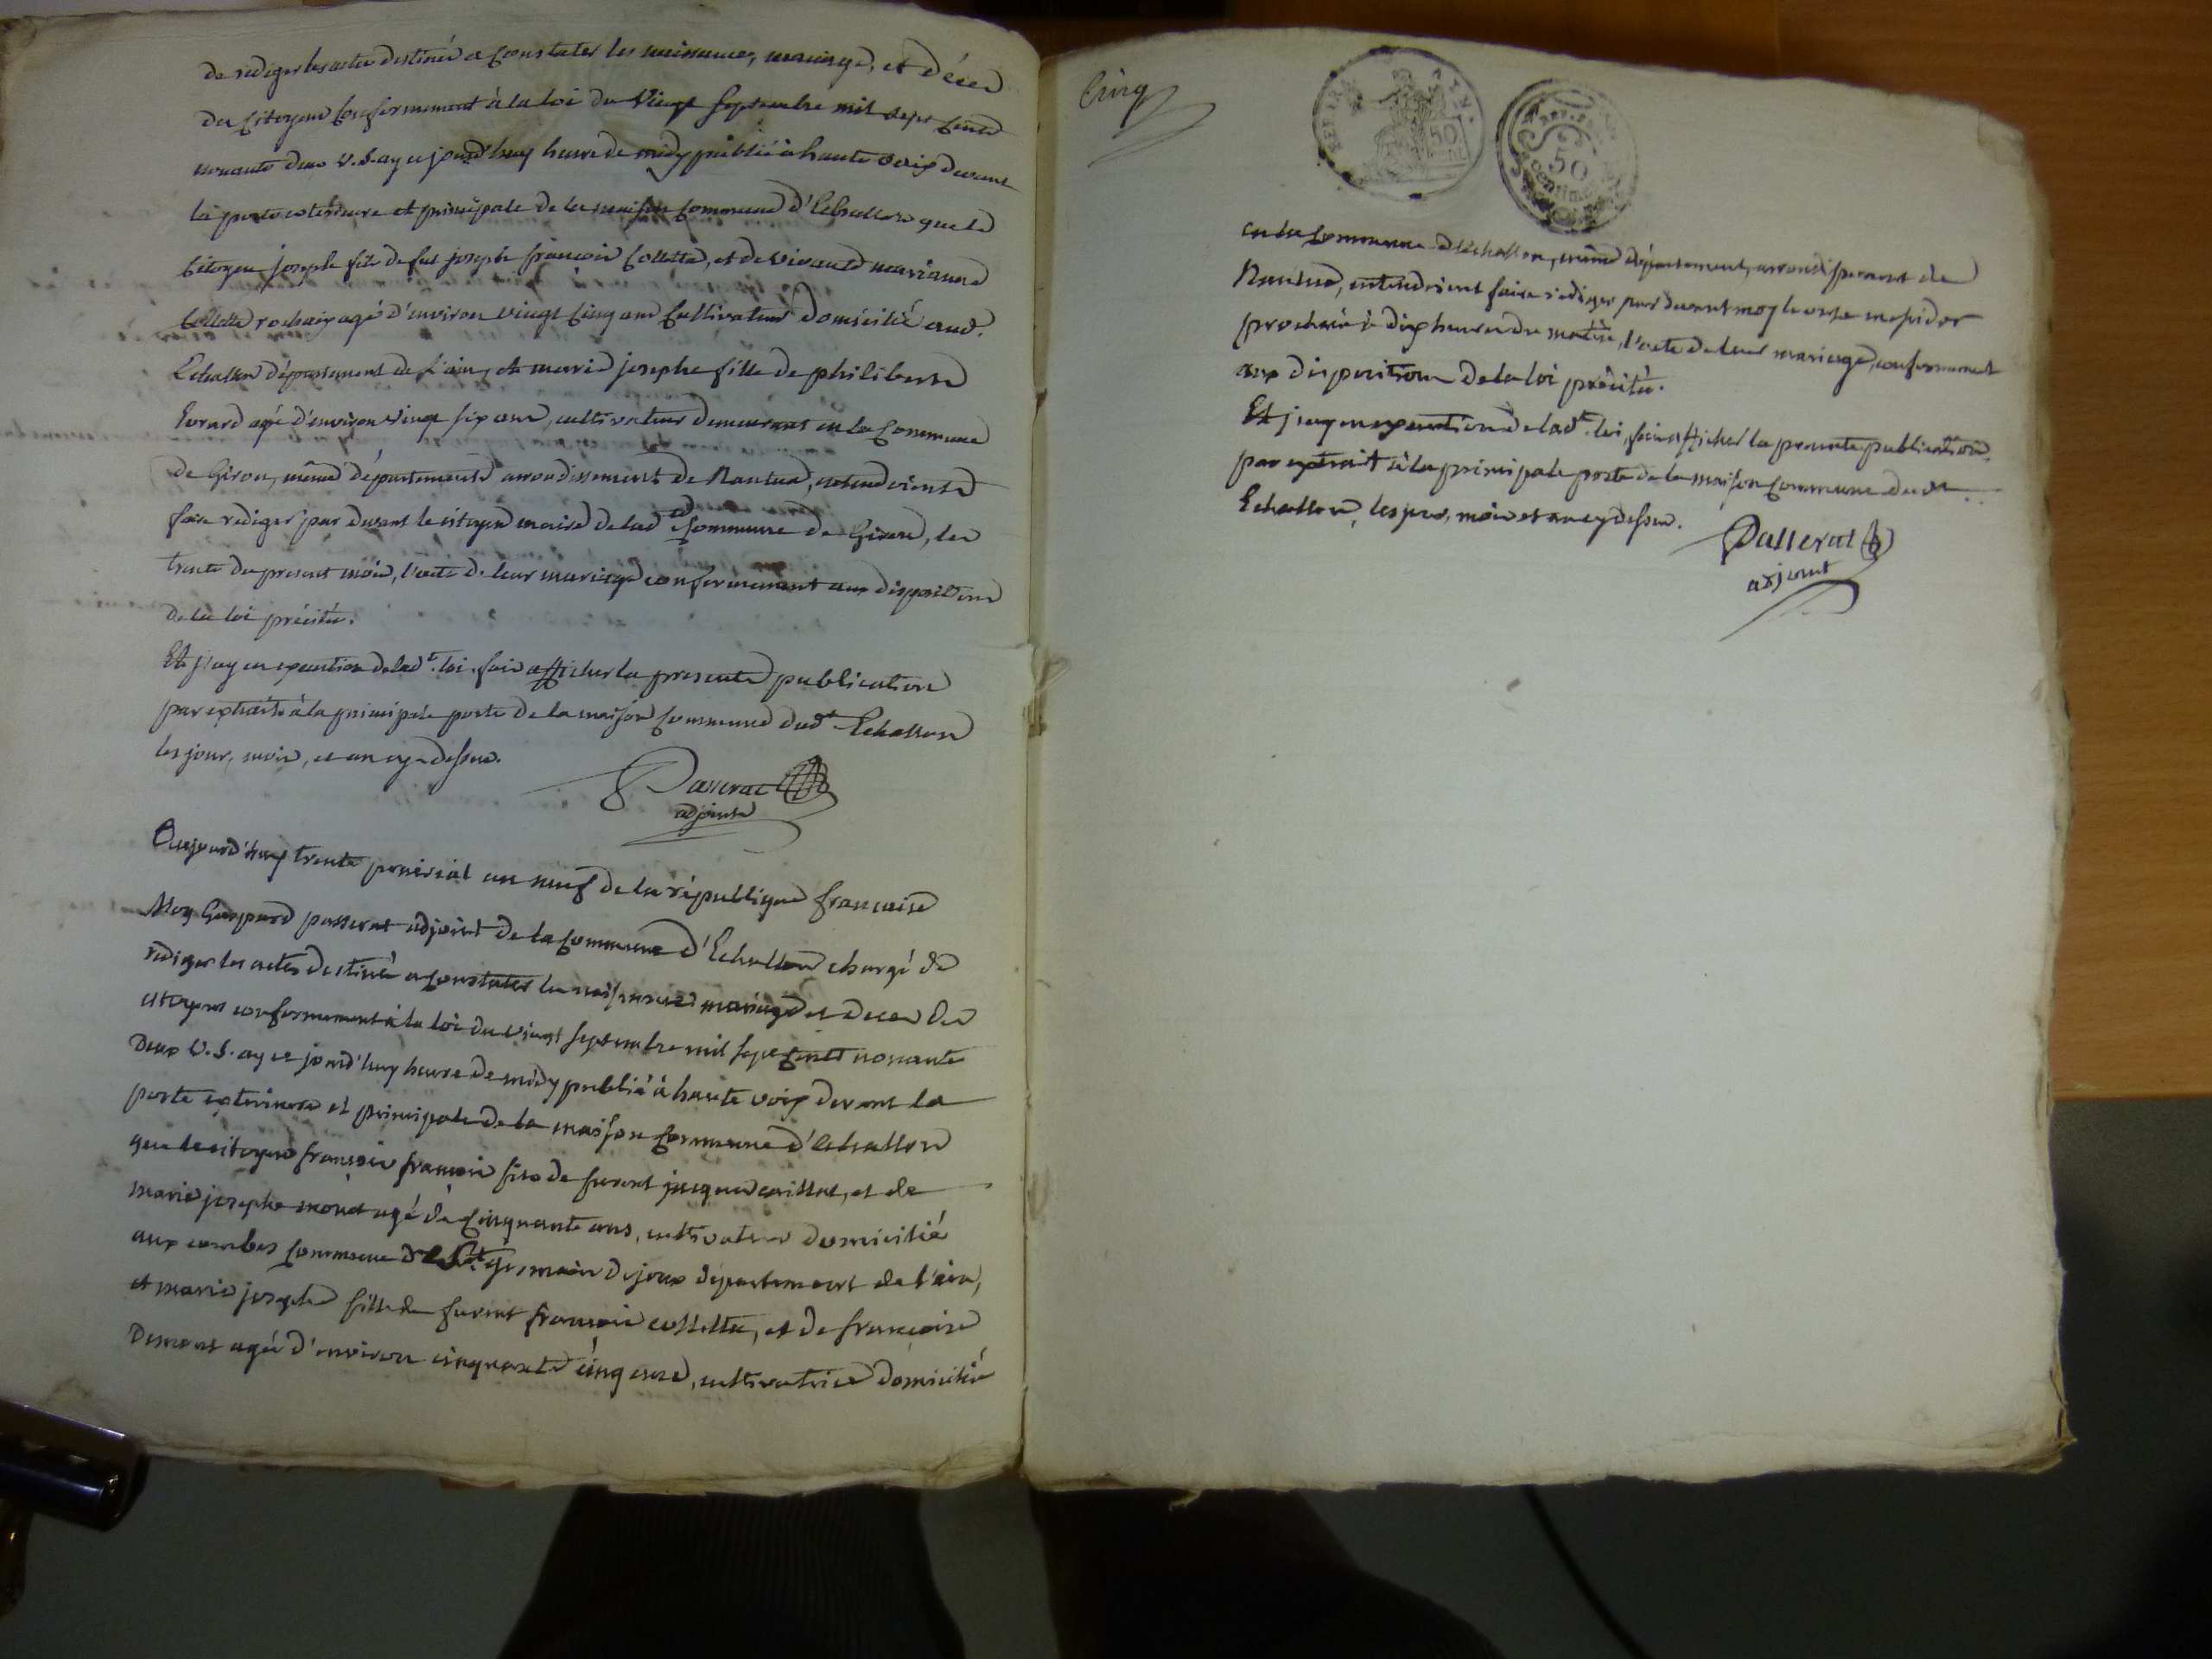 de rediger les actes destinés a constater les naissances, mariage, et décès
des citoyens conformement à la loi du vingt septembre mil sept cents
nonante deux v.s. ay ce jourd'huy heure de midy publié à haute voix devant
la porte exterieure et principale de la maison commune d'Echallon que le
citoyen joseph fils de fut joseph françois Collettaz, et de vivante marianne
Collettaz rochaix agé d'environ vingt cinq ans cultivateur domicilié aud.
Echallon département de l'ain, et marie josephe fille de philiberte
Evrard agée d'environ vingt six ans, cultivateur demeurant en la commune
de Giron, même département arrondissement de Nantua, entendoient
faire rediger par devant le citoyen maire de lad commune de Giron, les
trente du present mois, l'acte de leur mariage conformement aux dispositions
de la loi précitée.
Et j'ay en execution de lad.te loi, fait afficher la presente publication
par extrait à la principale porte de la maison commune dud.t Echallon
les jour, mois, et an cy-dessus.
Passerat
adjoint
Aujourd'huy trente prairial an neuf de la république française
Moy Gaspard passerat adjoint de la commune d'Echallon chargé de
rediger les actes destinés a constater les naissances mariage et deces des
citoyens conformement à la loi du vingt septembre mil sept cents nonante
deux v.s. ay ce jourd'huy heure de midy publié à haute voix devant la
porte exterieure et principale de la maison commune d'echallon
que le citoyen françois françois fils de furent jacques caillat, et de
marie josephe agé de cinquante ans, cultivateur domicilié
aux combes commune de St. germain de joux département de l'ain,
et marie josephe fille de furent françois collettaz, et de françoise
agée d'environ cinquante cinq ans, cultivatrice domicilié
Cinq
50
REP. FRA.
50
centimes
en la commune d'echallon, même département, arrondissement de
Nantua, entendoient faire rediger par devant moy le onze messidor
prochain à dix heures du matin, l'acte de leur mariage, conformement
aux dispositions de la loi précitée.
Et j'ay en execution de lad.te loi, fait afficher la presente publication
par extrait à la principale porte de la maison commune dud.t
Echallon, les jour, mois et an cy dessus.
Passerat
adjoint